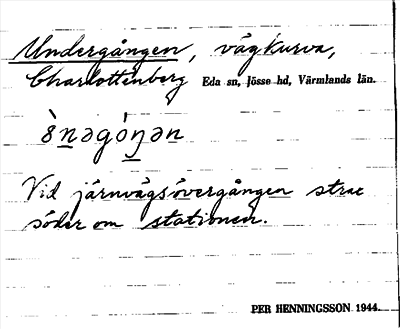 Undergången, vägkurva,
Charlottenberg Eda sn, Jösse hd, Värmlands län.
Vid järnvägsövergången strax
söder om stationen.
PER HENNINGSSON 1944.